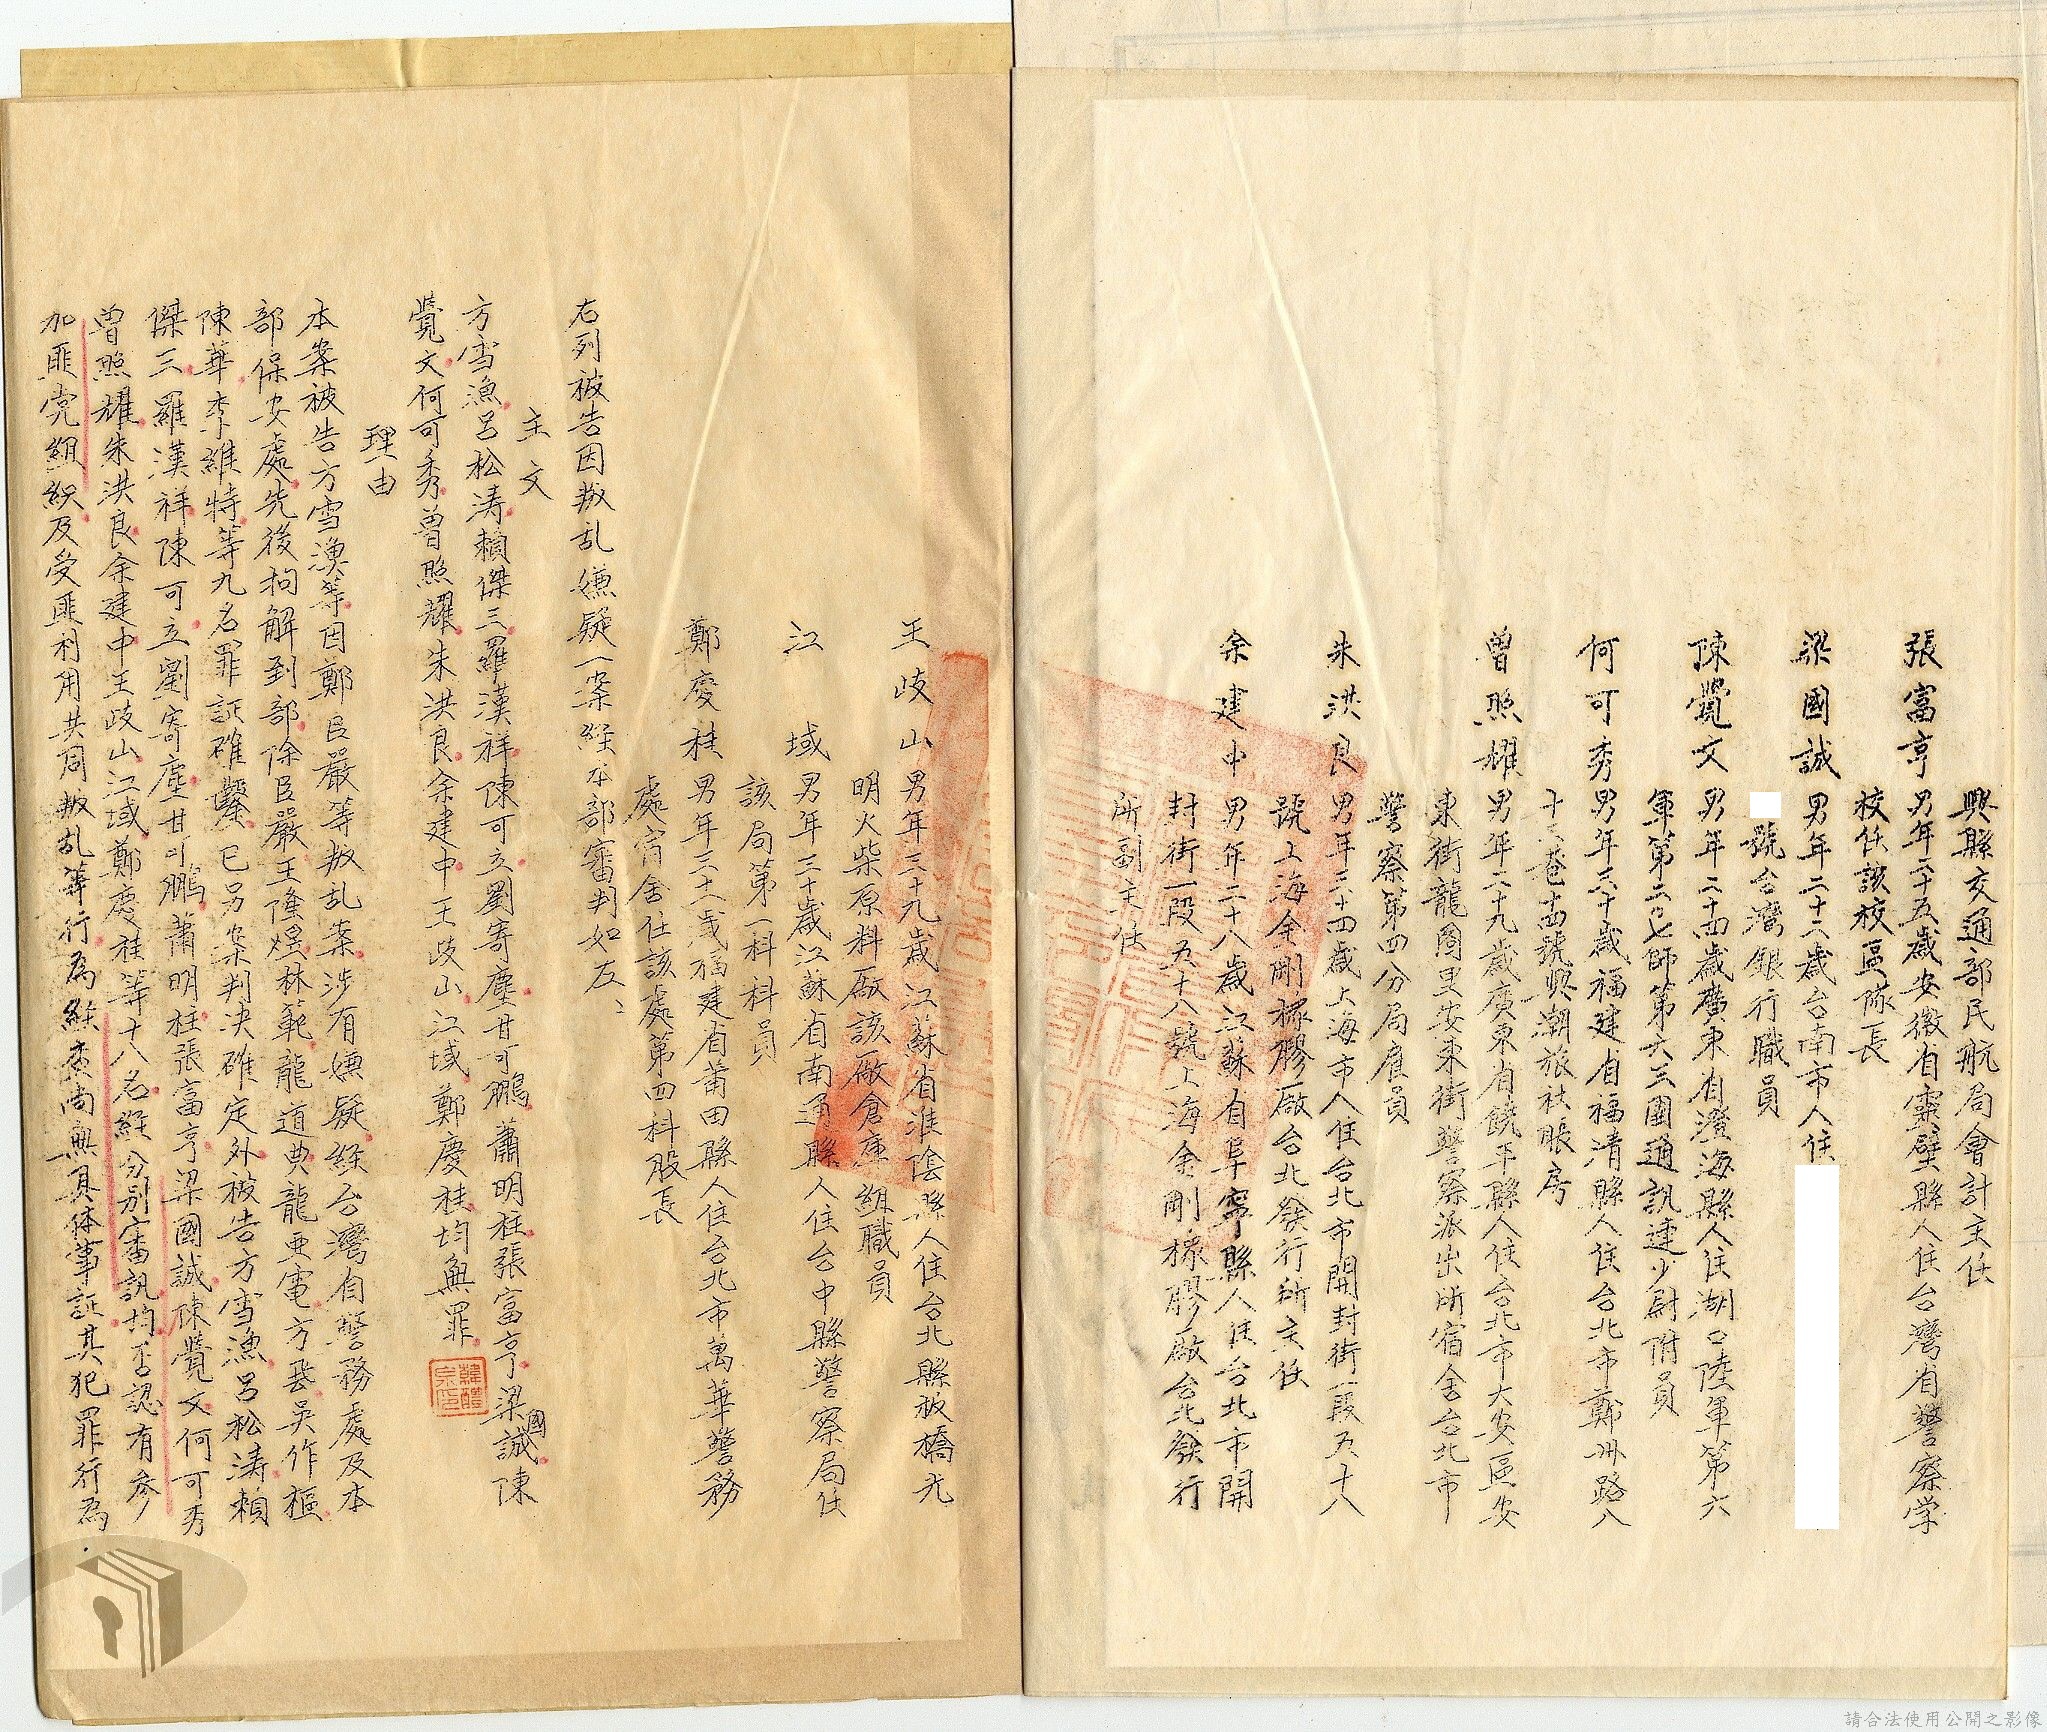 興縣交通部民航局會計主任
張富亨男年三十五歲安徽省靈璧縣人住台灣省警察学
校任該校區隊長
梁國誠男年二十二歲台南市人住
號台灣銀行職員
陳覺文男年二十四歲廣東省澄海縣人住湖口陸軍第六
軍第二〇七師第六三團通訊連少尉附員
何可秀男年三十歲福建省福清縣人住台北市鄭州路八
十六巷十四號興潮旅社賬房
曾照耀男年二十九歲廣東省饒平縣人住台北市大安區安
東街龍岡里安東街警察派出所宿舍台北市
警察第四分局雇員
朱洪良男年三十四歲上海市人住台北市開封街一段五十八
號上海金剛橡膠厰台北發行所主任
余建中男年二十八歲江蘇省阜寧縣人住台北市開
封街一段五十八號上海金剛橡膠厰台北發行
所副主任
王岐山男年三十九歲江蘇省淮陰縣人住台北縣板橋光
明火柴原料厰該厰倉庫組職員
江域男年三十歲江蘇省南通縣人住台中縣警察局任
該局第一科科員
鄭慶桂男年三十一歲福建省莆田縣人住台北市萬華警務
處宿舍任該處第四科股長
右列被告因叛乱嫌疑一案経本部審判如左：
主文
方雪漁呂松涛賴傑三羅漢祥陳可立劉寄塵甘可鵬蕭明柱張富亨梁國誠陳
覺文何可秀曾照耀朱洪良余建中王岐山江域鄭慶桂均無罪
韓醴泉印
理由
本案被告方雪漁等因鄭臣嚴等叛乱案涉有嫌疑経台灣省警務處及本
部保安處先後拘解到部除臣嚴王隆煜林範龍道典龍亜電方晨吳作樞
陳華李維特等九名罪証確鑿已另案判決確定外被告方雪漁呂松涛賴
傑三羅漢祥陳可立劉寄塵甘可鵬蕭明柱張富亨梁國誠陳覺文何可秀
曾照耀朱洪良余建中王岐山江域鄭慶桂等十八名経分別審訊均否認有參
加匪党組織及受匪利用共同叛乱等行為経查尚無具体事証其犯罪行為
請合法使用公開之影像